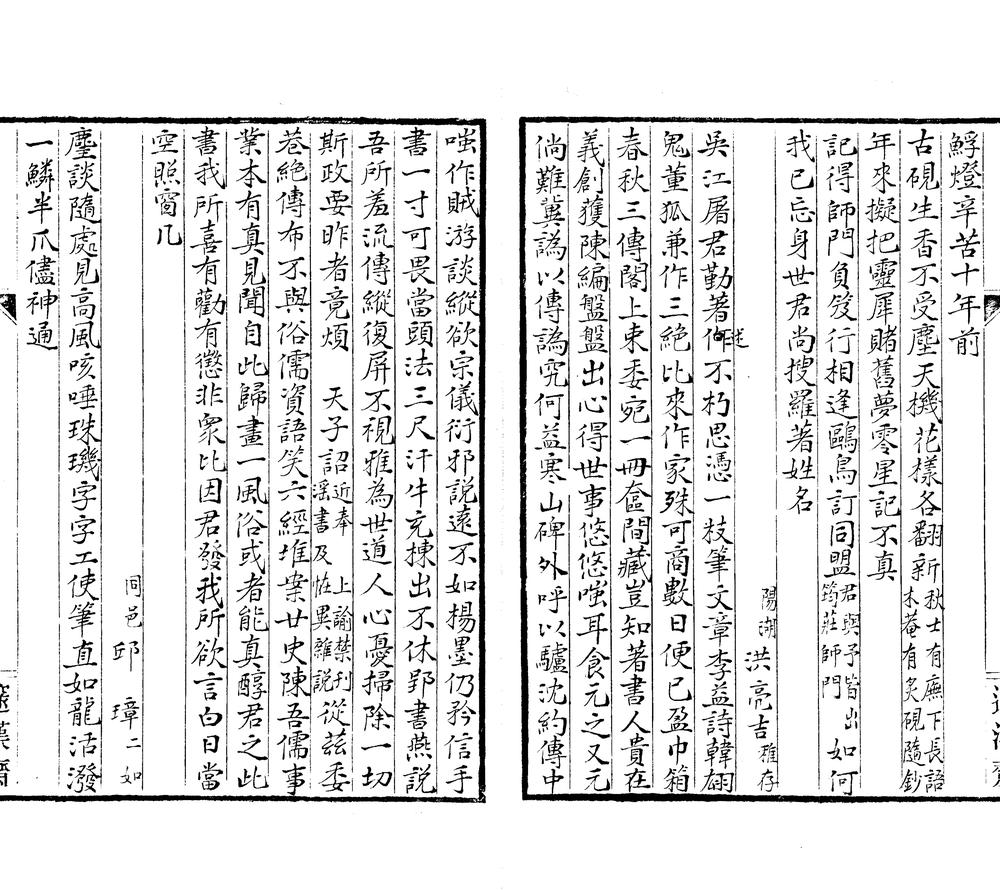 鯚燈辛苦十年前
古硯生香不受塵天機花樣各翻新秋士有廡下長語木菴有炙硯隨鈔
年來擬把靈犀賭舊夢零星記不真
記得師門負笈行相逢鷗鳥訂同盟君與予皆出筠莊師門如何
我已忘身世君尚搜羅著姓名
陽湖洪亮吉稚存
吳江屠君勤著作述不朽思憑一枝筆文章李益詩韓翃
鬼董狐兼作三絕比來作家殊可商數日便已盈巾箱
春秋三傳閣上束委宛一冊奩間藏豈知著書人貴在
義創獲陳編盤盤出心得世事悠悠嗤耳食元之又元
倘難冀譌以傳譌究何益寒山碑外呼以驢沈約傳中
嗤作賊游談縱欲宗儀衍邪說遠不如楊墨仍矜信手
書一寸可畏當頭法三尺汗牛充棟出不休郢書燕說
吾所羞流傳縱復屏不視雅為世道人心憂掃除一切
斯政要昨者竟煩 天子詔近奉 上諭禁刊淫書及恠異雜說從茲委
巷絕傳布不與俗儒資語笑六經堆案廿史陳吾儒事
業本有真見聞自此歸畫一風俗或者能真醇君之此
書我所喜有勸有懲非衆比因君發我所欲言白日當
空照窗几
同邑邱 璋二如
麈談隨處見高風咳唾珠璣字字工使筆直如龍活潑
一鱗半爪儘神通